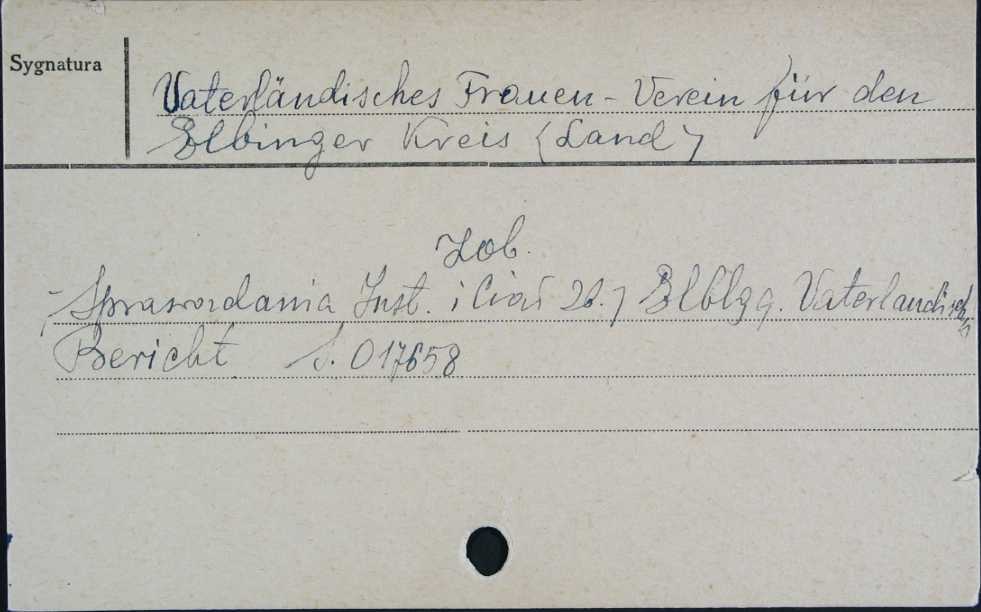 Sygnatura
Vaterländisches Frauen-Verein für den
Elbinger Kreis (Land)
Zob.
Sprawozdania Inst. i Ciał Zb.)
Bericht S. 017658